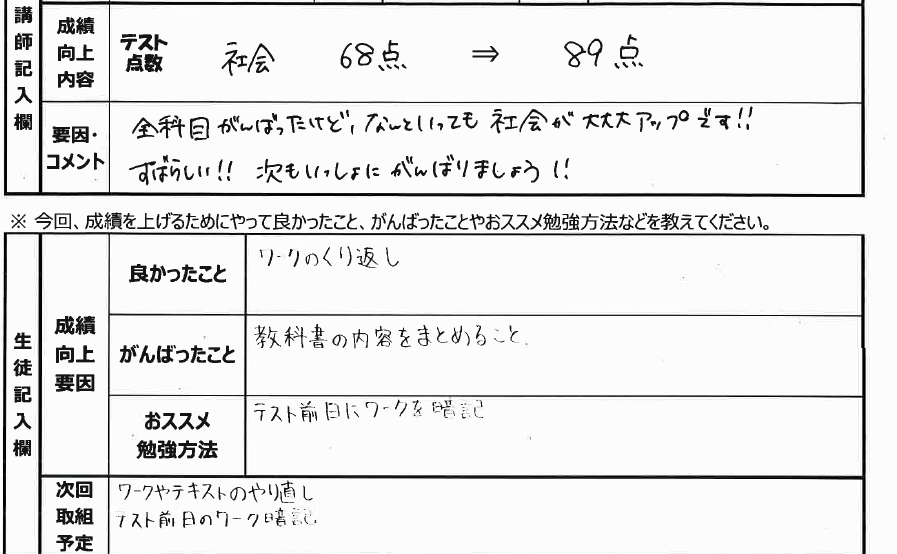 講師記入欄
成績向上内容
テスト点数 社会 68点 ⇒ 89点
要因・コメント
全科目がんばったけど、なんといっても社会が大大大アップです!!
すばらしい!! 次もいっしょにがんばりましょう!!
※ 今回、成績を上げるためにやって良かったこと、がんばったことやおススメ勉強方法などを教えてください。
生徒記入欄
成績向上要因
良かったこと ワークのくり返し
がんばったこと 教科書の内容をまとめること.
おススメ勉強方法 テスト前日にワークを暗記
次回取組予定
ワークやテキストのやり直し
テスト前日のワーク暗記